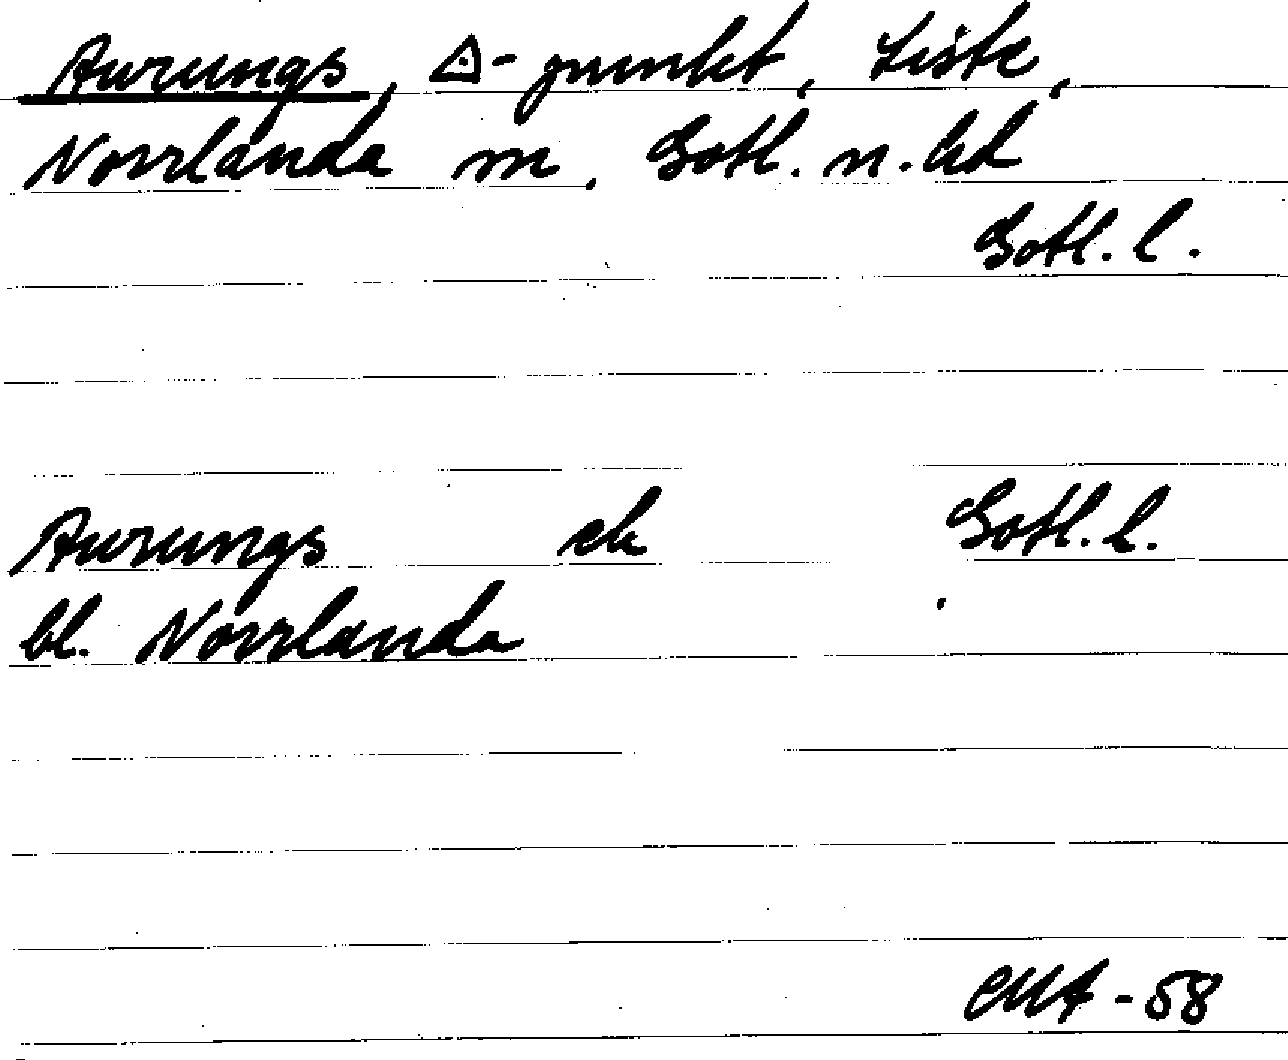 Aurungs, △-punkt, Liste,
Norrlanda sn, Gotl. n. hd
Gotl. l.
Aurungs ek Gotl. l.
bl. Norrlanda
-58